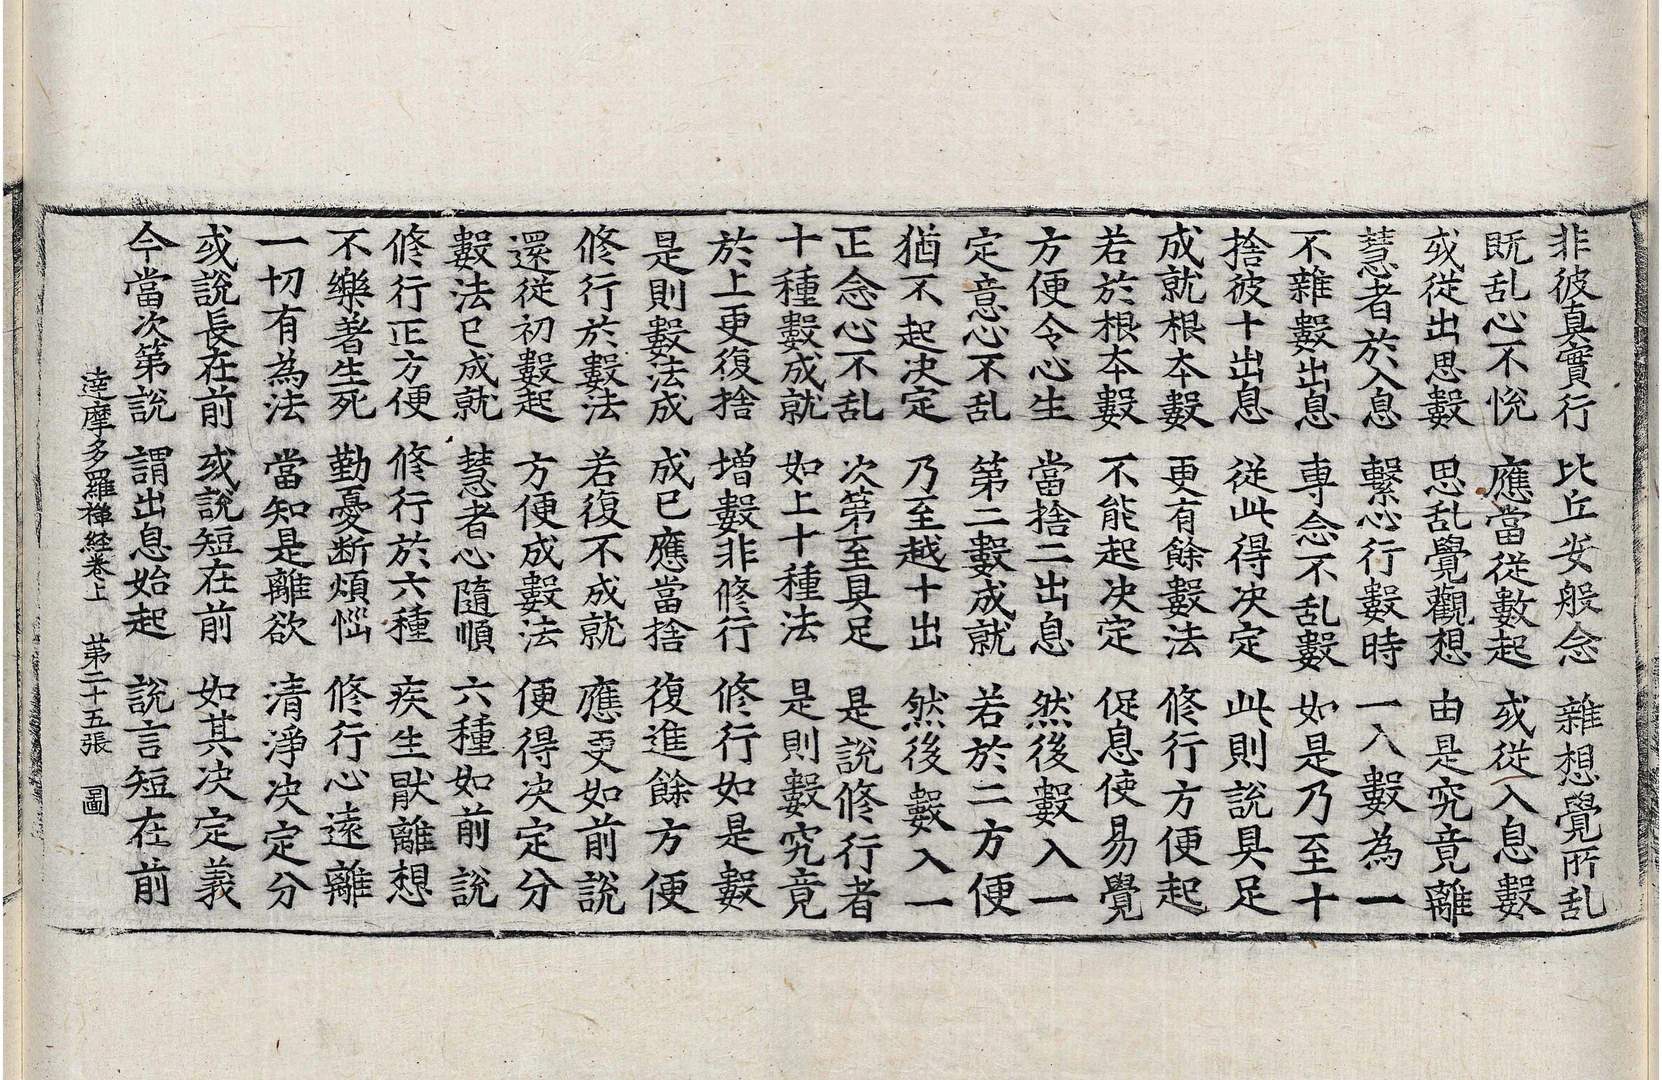 非彼真實行 比丘安般念 雜想覺所乱
既乱心不悅 應當從數起 或從入息數
或從出息數 思乱覺觀想 由是究竟離
慧者於入息 繫心行數時 一入數為一
不雜數出息 專念不乱數 如是乃至十
捨彼十出息 從此得决定 此則說具足
成就根本數 更有餘數法 修行方便起
若於根本數 不能起决定 促息使易覺
方便令心生 當捨二出息 然後數入一
定意心不乱 第二數成就 若於二方便
猶不起决定 乃至越十出 然後數入一
正念心不乱 次第至具足 是說修行者
十種數成就 如上十種法 是則數究竟
於上更復捨 增數非修行 修行如是數
是則數法成 成已應當捨 復進餘方便
修行於數法 若復不成就 應更如前說
還從初數起 方便成數法 便得决定分
數法已成就 慧者心隨順 六種如前說
修行正方便 修行於六種 疾生猒離想
不樂著生死 勤憂断煩惱 修行心遠離
一切有為法 當知是離欲 清淨决定分
或說長在前 或說短在前 如其决定義
今當次第說 謂出息始起 說言短在前
達摩多羅禪経卷上 第二十五張 啚